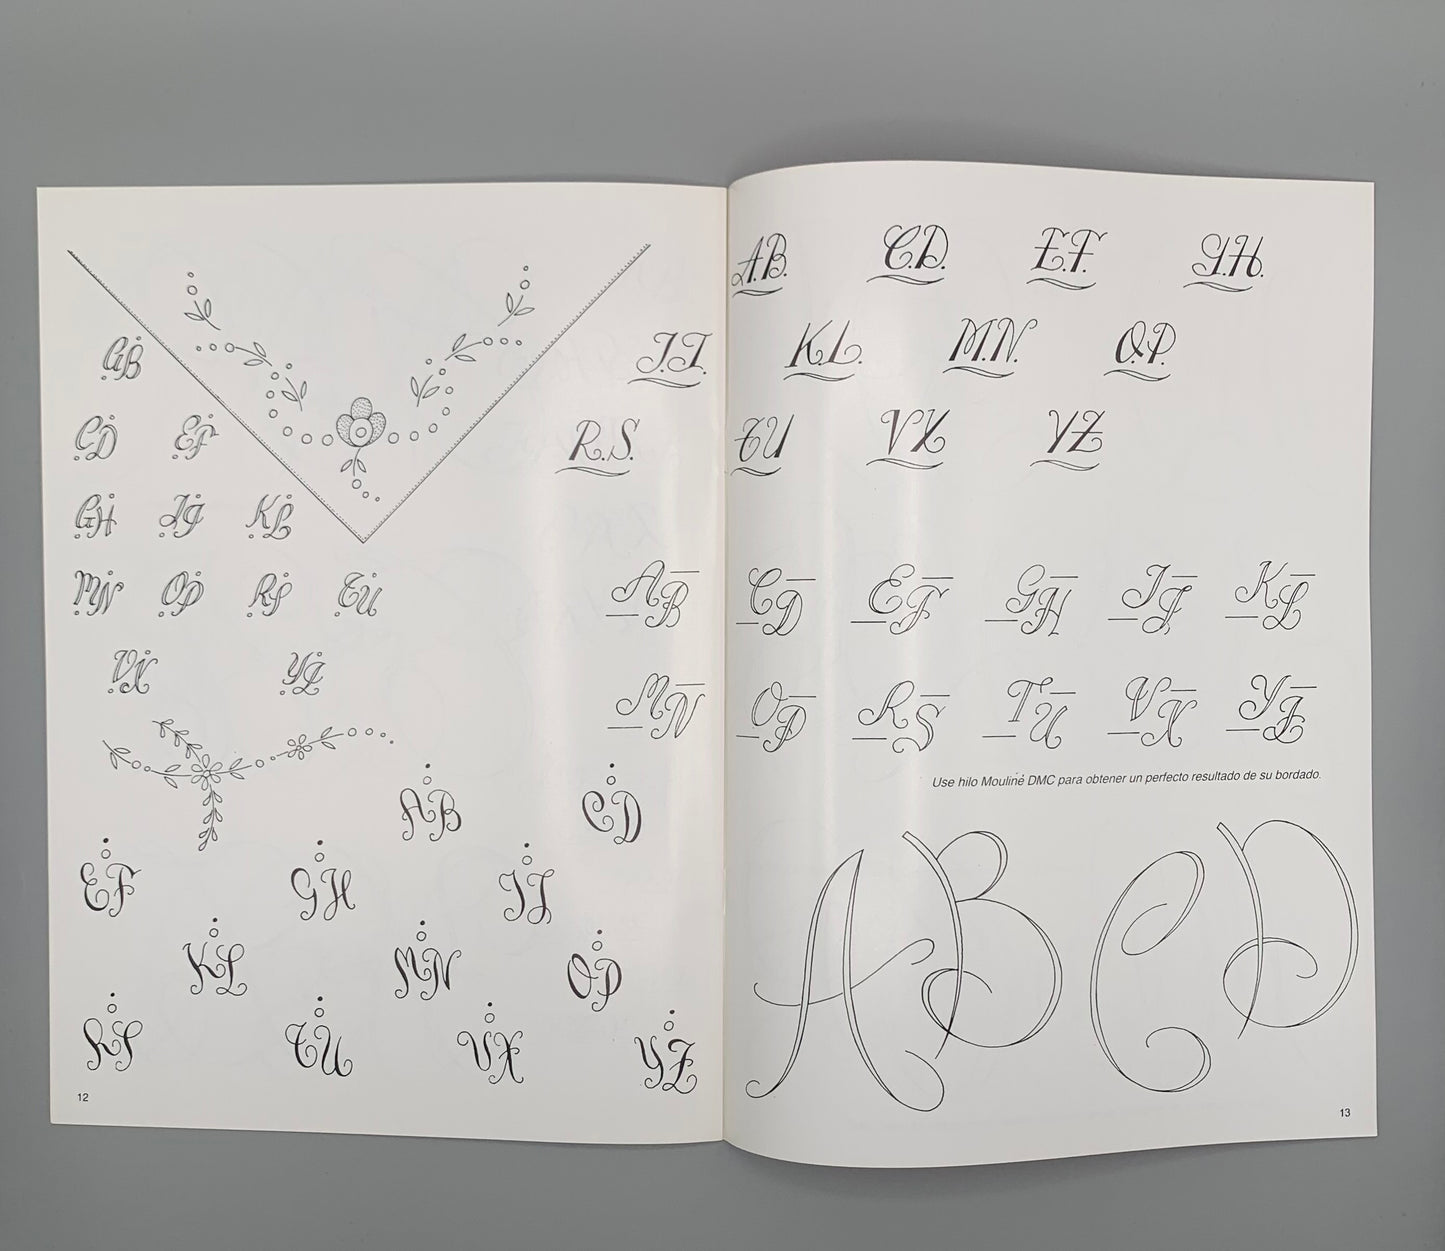 A.B. C.D. E.F. G.H.
I.J. K.L. M.N. O.P.
R.S. TU VX YZ
AB CD EF GH IJ KL
MN OP RS TU VX YZ
Use hilo Mouliné DMC para obtener un perfecto resultado de su bordado.
AB CD
13
GB
CD EF
GH IJ KL
MN OP RS TU
VX YZ
AB CD
EF GH IJ
KL MN OP
RS TU VX YZ
12